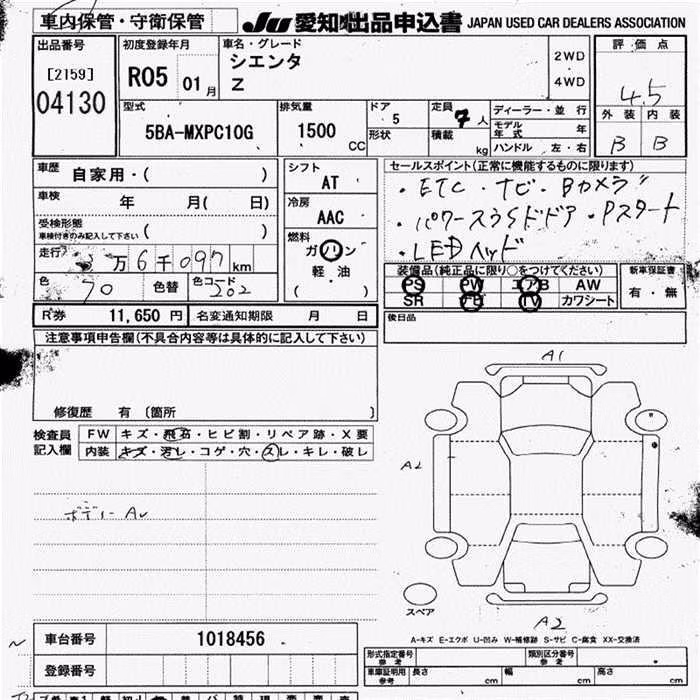 車内保管・守衛保管 JU 愛知 出品申込書 JAPAN USED CAR DEALERS ASSOCIATION
出品番号 初度登録年月 車名・グレード 評価点
[2159] R05 01月 シエンタ 2WD 4.5
04130 Z 4WD
外装 内装
型式 排気量 ドア 定員 ディーラー・並行 B B
5BA-MXPC10G 1500CC 5 7人 モデル年式 年
形状 積載 kg ハンドル 左・右
車歴 自家用・( ) シフト セールスポイント(正常に機能するものに限ります)
AT ・ETC・ナビ・Bカメラ
車検 年 月( 日) 冷房 ・パワースラSドドア・Pスタート
AAC ・LEDヘッド
受検形態
車検付きのみ記入して下さい ( ) 燃料
走行 万6千097km ガソリン 装備品(純正品に限り○をつけてください) 新車保証書
軽・油 PS PW エアB AW 有・無
色 70 色替 色コード 202 ( ) SR ナビ TV カワシート
R券 11,650円 名変通知期限 月 日 後日品
注意事項申告欄(不具合内容等は具体的に記入して下さい)
修復歴 有 〔箇所 〕
検査員 FW キズ・飛石・ヒビ割・リペア跡・X要
記入欄 内装 キズ・汚レ・コゲ・穴・スレ・キレ・破レ
A1
A2
ボデーAハ
スペア
A2
A-キズ E-エクボ U-凹み W-補修跡 S-サビ C-腐食 XX-交換済
車台番号 1018456
形式指定番号 参考 類別区分番号 参考
登録番号 車庫証明用 参考 長さ cm 幅 cm 高さ cm